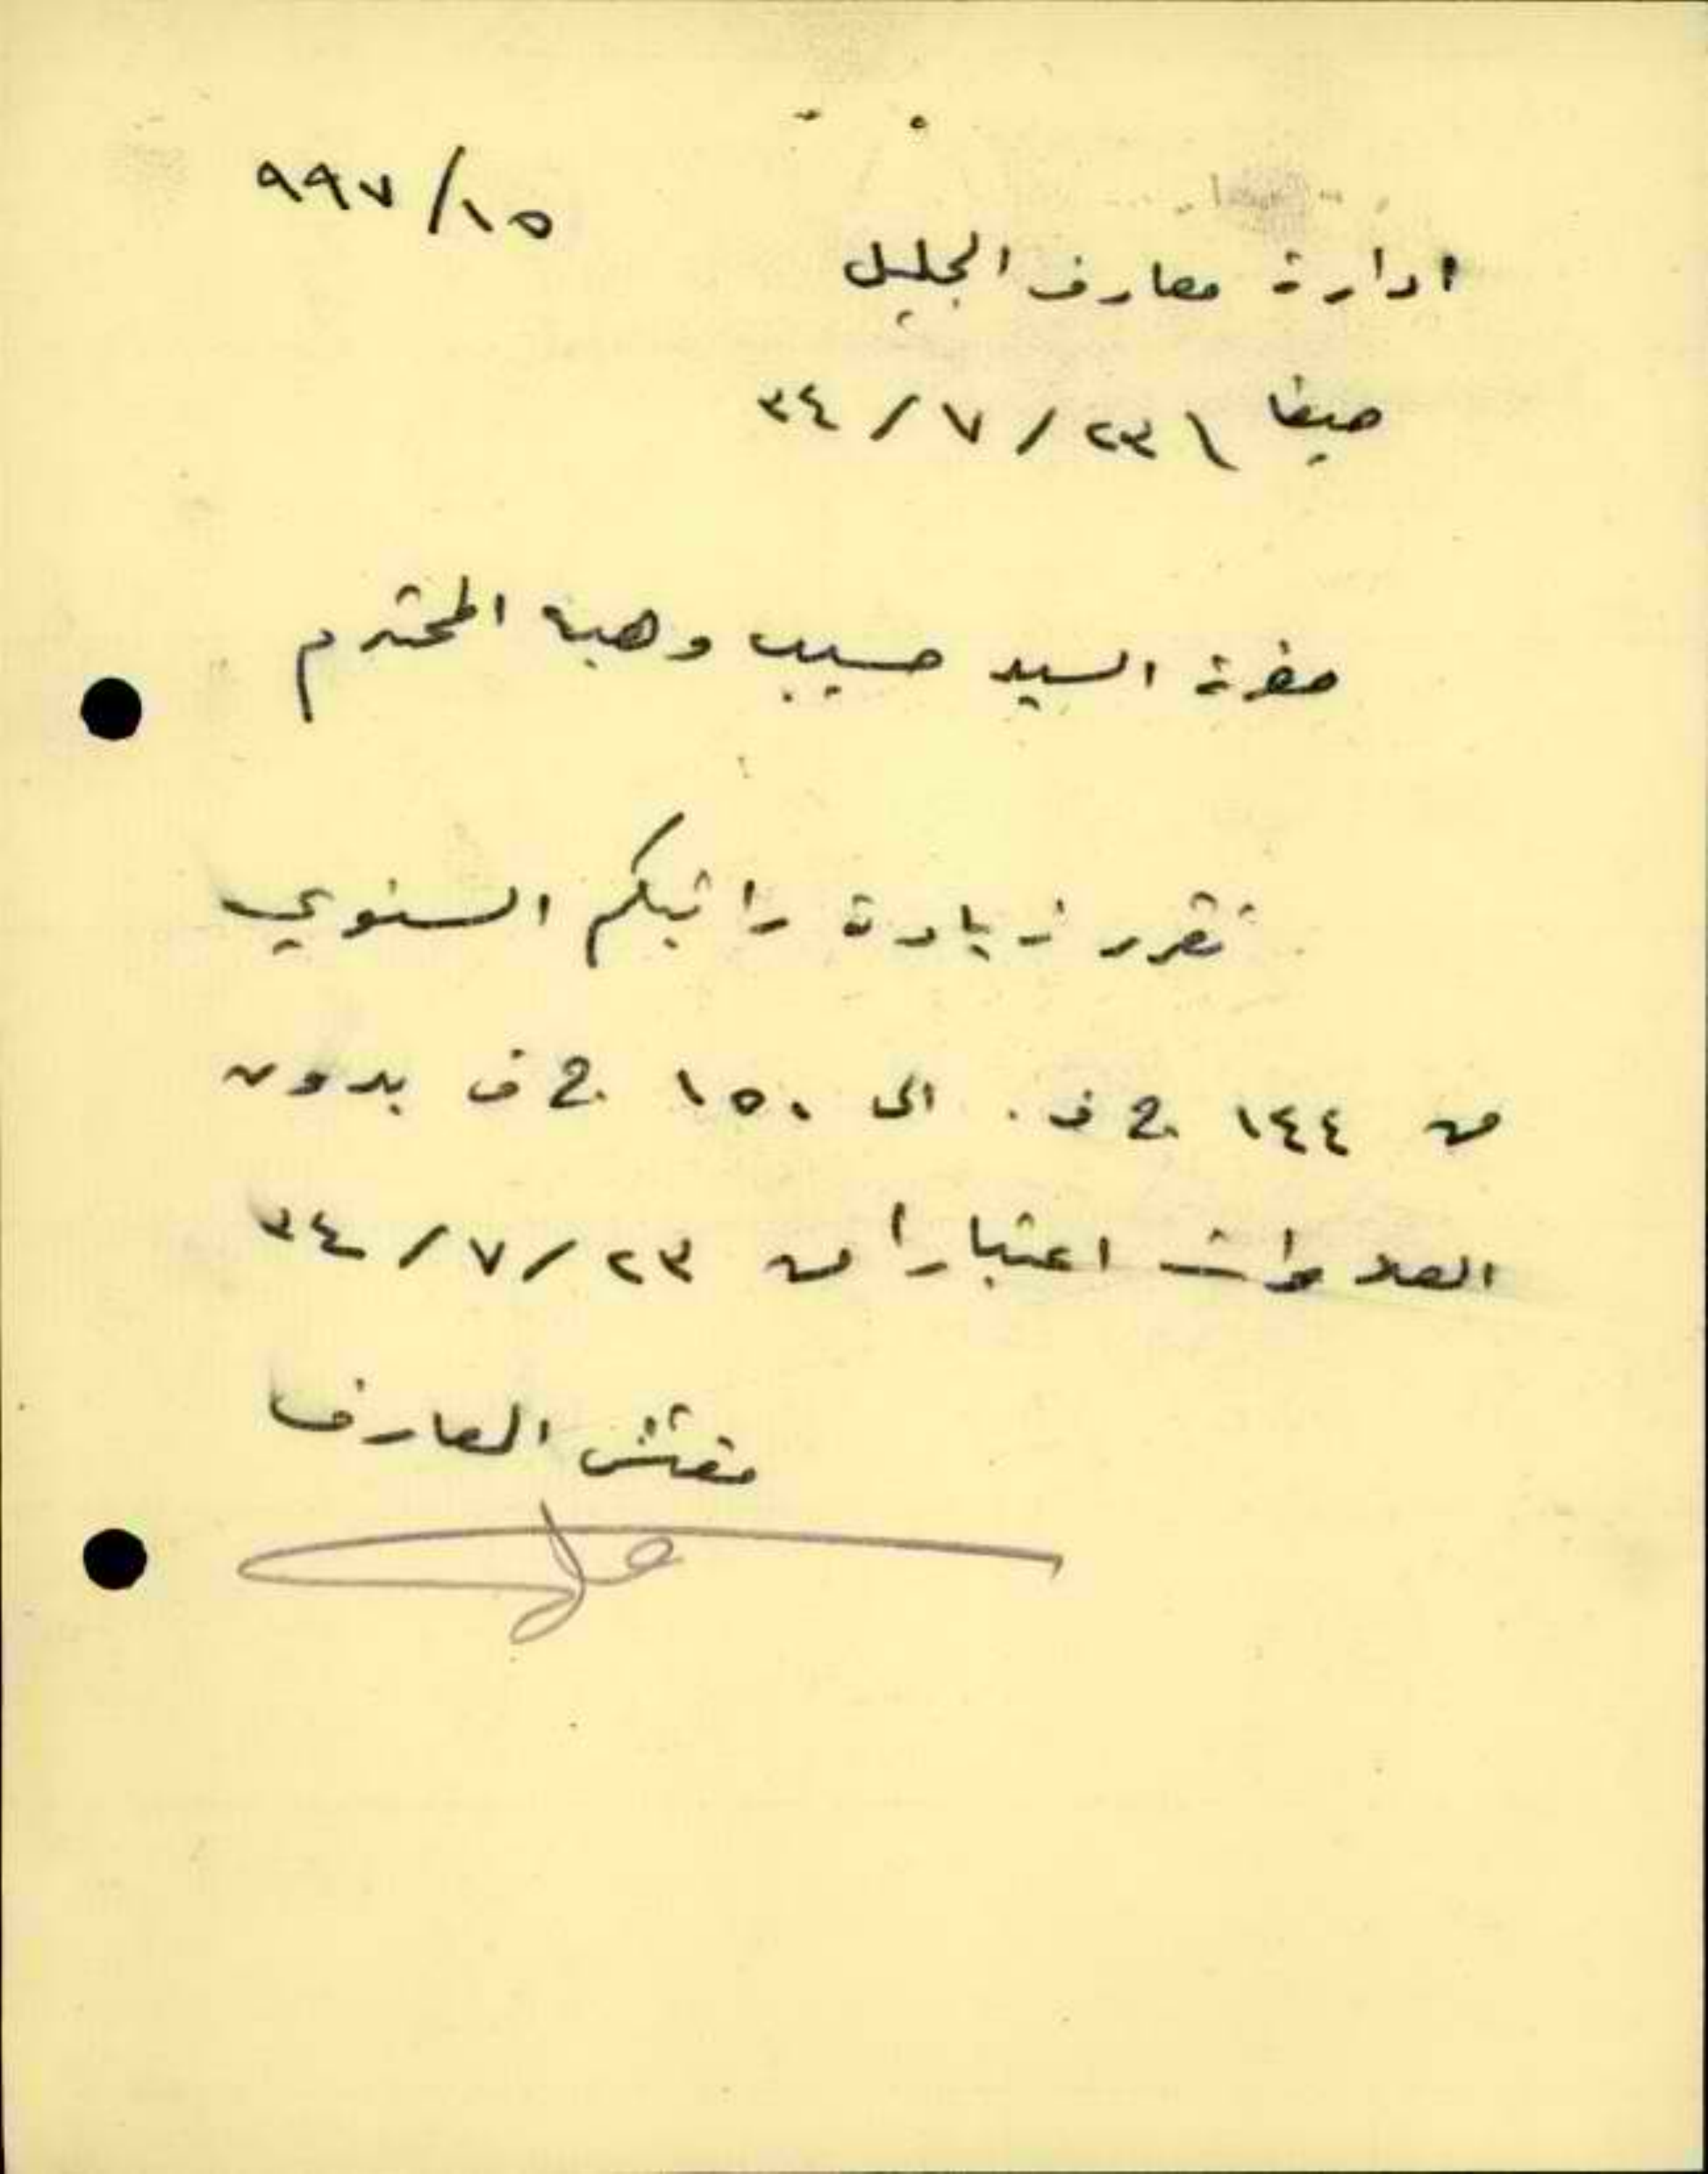 ٩٩٧/١٥
ادارة معارف الجليل
حيفا \ ٢٣ / ٧ / ٣٤
حضرة السيد حسيب وهبه المحترم
تقرر زيادة راتبكم السنوي
من ١٤٤ ج ف . الى ١٥٠ ج ف بدون
العلاوات اعتبارا من ٢٣ / ٧ / ٣٤
مفتش المعارف